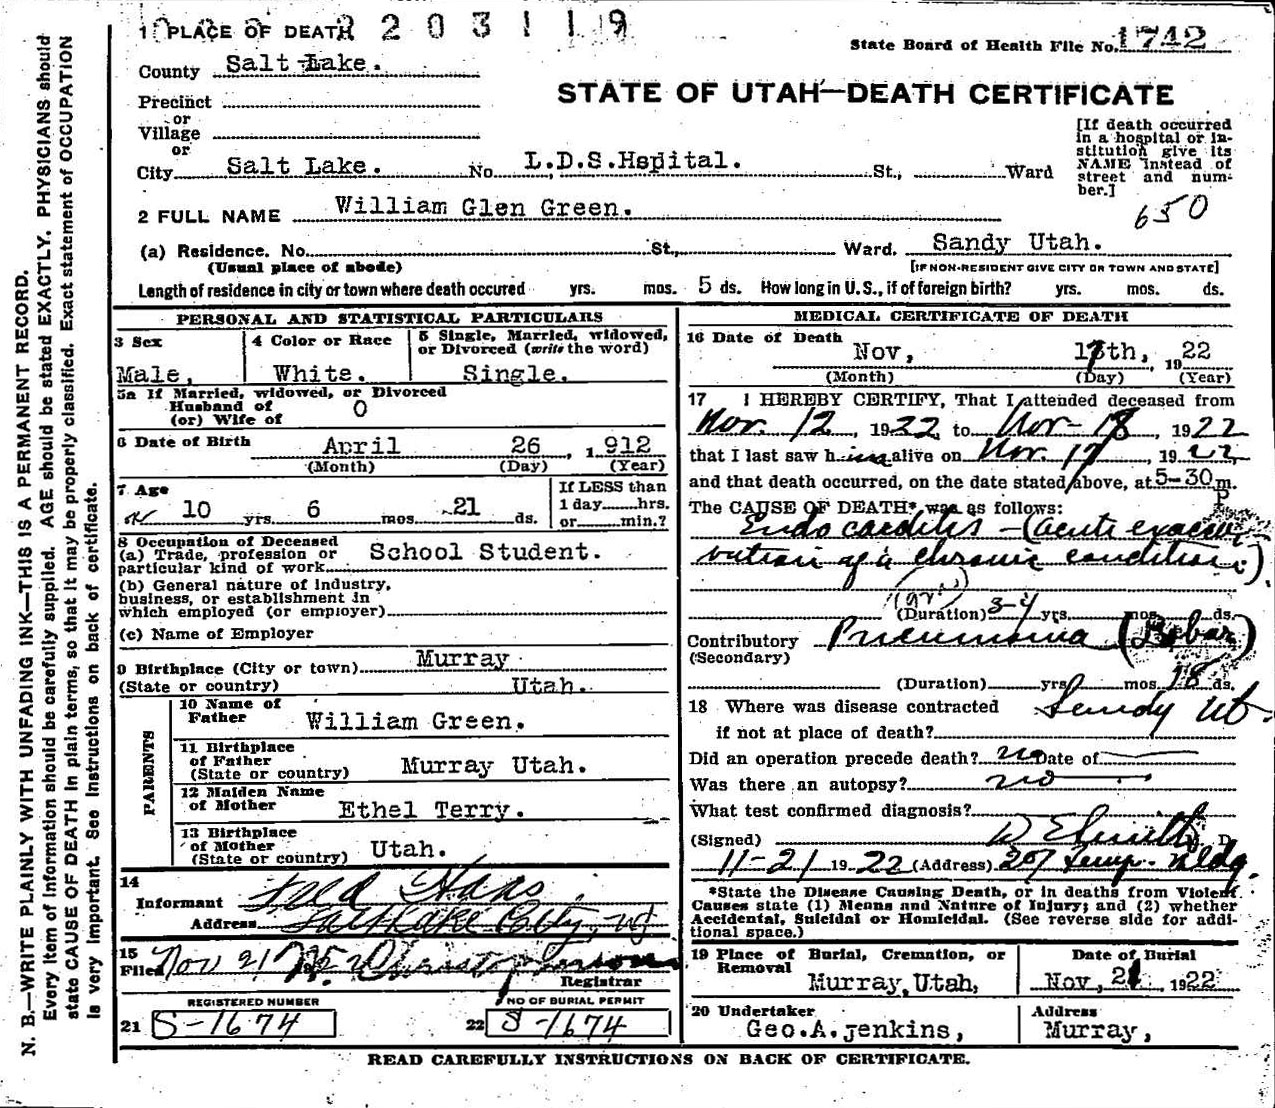 2 0 3 1 1 9
1 PLACE OF DEATH
State Board of Health File No. 1742
County Salt Lake.
STATE OF UTAH—DEATH CERTIFICATE
Precinct
or
Village
or
City Salt Lake. No. L.D.S.Hspital. St., Ward
[If death occurred
in a hospital or in-
stitution give its
NAME instead of
street and num-
ber.]
650
2 FULL NAME William Glen Green.
(a) Residence. No. St., Ward. Sandy Utah.
(Usual place of abode) [IF NON-RESIDENT GIVE CITY OR TOWN AND STATE]
Length of residence in city or town where death occured yrs. mos. 5 ds. How long in U.S., if of foreign birth? yrs. mos. ds.
PERSONAL AND STATISTICAL PARTICULARS
3 Sex
Male,
4 Color or Race
White.
5 Single, Married, widowed,
or Divorced (write the word)
Single.
5a If Married, widowed, or Divorced
Husband of
(or) Wife of O
6 Date of Birth April 26 , 1 912
(Month) (Day) (Year)
7 Age
10 yrs. 6 mos. 21 ds.
If LESS than
1 day hrs.
or min.?
8 Occupation of Deceased
(a) Trade, profession or
particular kind of work School Student.
(b) General nature of industry,
business, or establishment in
which employed (or employer)
(c) Name of Employer
9 Birthplace (City or town) Murray
(State or country) Utah.
PARENTS
10 Name of
Father William Green.
11 Birthplace
of Father
(State or country) Murray Utah.
12 Maiden Name
of Mother Ethel Terry.
13 Birthplace
of Mother
(State or country) Utah.
14
Informant
Address Salt Lake City, Ut
15
Filed Nov 21
Registrar
REGISTERED NUMBER
21 S-1674
NO OF BURIAL PERMIT
22 S-1674
MEDICAL CERTIFICATE OF DEATH
16 Date of Death
Nov, , 19 22
(Month) (Day) (Year)
17 I HEREBY CERTIFY, That I attended deceased from
Nov. 12 , 19 22, to Nov- 18 , 19 22
that I last saw h im alive on Nov. 17 , 19 22
and that death occurred, on the date stated above, at 5-30 p m.
The CAUSE OF DEATH* was as follows:
Endo carditis - (acute exacer-
bation of a chronic condition).
(Duration) 3-4 yrs. mos. ds.
Contributory Pneumonia (Lobar)
(Secondary)
(Duration) yrs. mos. 18 ds.
18 Where was disease contracted
if not at place of death? Sandy Ut.
Did an operation precede death? no Date of
Was there an autopsy? no
What test confirmed diagnosis?
(Signed) D.
11-21 19 22 (Address) 207 Temp. Bldg.
*State the Disease Causing Death, or in deaths from Violent
Causes state (1) Means and Nature of Injury; and (2) whether
Accidental, Suicidal or Homicidal. (See reverse side for addi-
tional space.)
19 Place of Burial, Cremation, or
Removal
Murray, Utah,
Date of Burial
Nov, 21 , 19 22
20 Undertaker
Geo.A.jenkins,
Address
Murray,
READ CAREFULLY INSTRUCTIONS ON BACK OF CERTIFICATE.
N. B.—WRITE PLAINLY WITH UNFADING INK—THIS IS A PERMANENT RECORD.
Every item of information should be carefully supplied. AGE should be stated EXACTLY. PHYSICIANS should
state CAUSE OF DEATH in plain terms, so that it may be properly classified. Exact statement of OCCUPATION
is very important. See instructions on back of certificate.